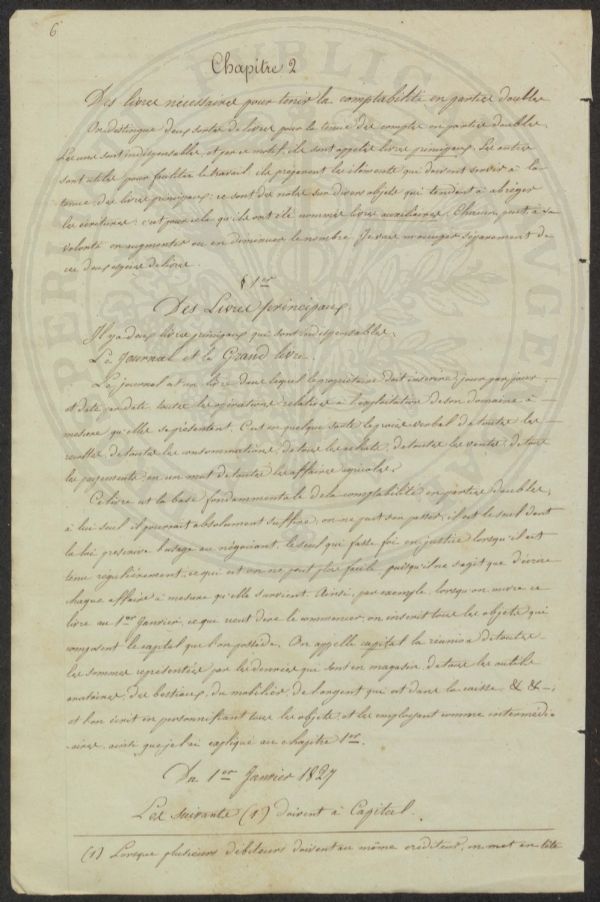 6
Chapitre 2
Des livres nécessaires pour tenir la comptabilité en parties doubles
On distingue deux sortes de livres pour la tenue des comptes en parties doubles
Les uns sont indispensables, et par ce motif ils sont appelés livres principaux. Les autres
sont utiles pour faciliter le travail, ils préparent les éléments qui doivent servir à la
tenue des livres principaux: ce sont des notes sur divers objets qui tendent à abréger
les écritures: c'est pour cela qu'ils ont été nommés livres auxiliaires. Chacun peut, à sa
volonté en augmenter ou en diminuer le nombre. Je vais m'occuper séparément de
ces deux espèces de livres.
§ 1er
Des Livres principaux.
Il y a deux livres principaux qui sont indispensables.
Le Journal et le Grand livre.
Le journal est un livre dans lequel le propriétaire doit inscrire jour par jour
et date par date toutes les opérations relatives à l'exploitation de son domaine à
mesure qu'elles se présentent. C'est en quelque sorte le procès verbal de toutes les
recettes, de toutes les consommations, de tous les achats, de toutes les ventes, de tous
les payements, en un mot de toutes les affaires agricoles.
Ce livre est la base fondamentale de la comptabilité en parties doubles,
à lui seul il pourrait absolument suffire, on ne peut s'en passer, il est le seul dont
la loi prescrive l'usage au négociant, le seul qui fasse foi en justice lorsqu'il est
tenu régulièrement, ce qui est on ne peut plus facile puisqu'il ne s'agit que d'écrire
chaque affaire à mesure qu'elle survient. Ainsi, par exemple, lorsqu'on ouvre ce
livre au 1er Janvier, ce que veut dire le commencer, on inscrit tous les objets qui
composent le capital que l'on possède. On appelle capital la réunion de toutes
les sommes représentées par les denrées qui sont en magasin, de tous les outils
aratoires, des bestiaux, du mobilier, de l'argent qui est dans la caisse &. &.
et l'on écrit en personnifiant tous les objets, et les employant comme intermédi-
aires, ainsi que je l'ai expliqué au chapitre 1er.
Du 1er Janvier 1827
Les suivants (1) doivent à Capital.
(1) Lorsque plusieurs débiteurs doivent au même créditeur, on met en tête